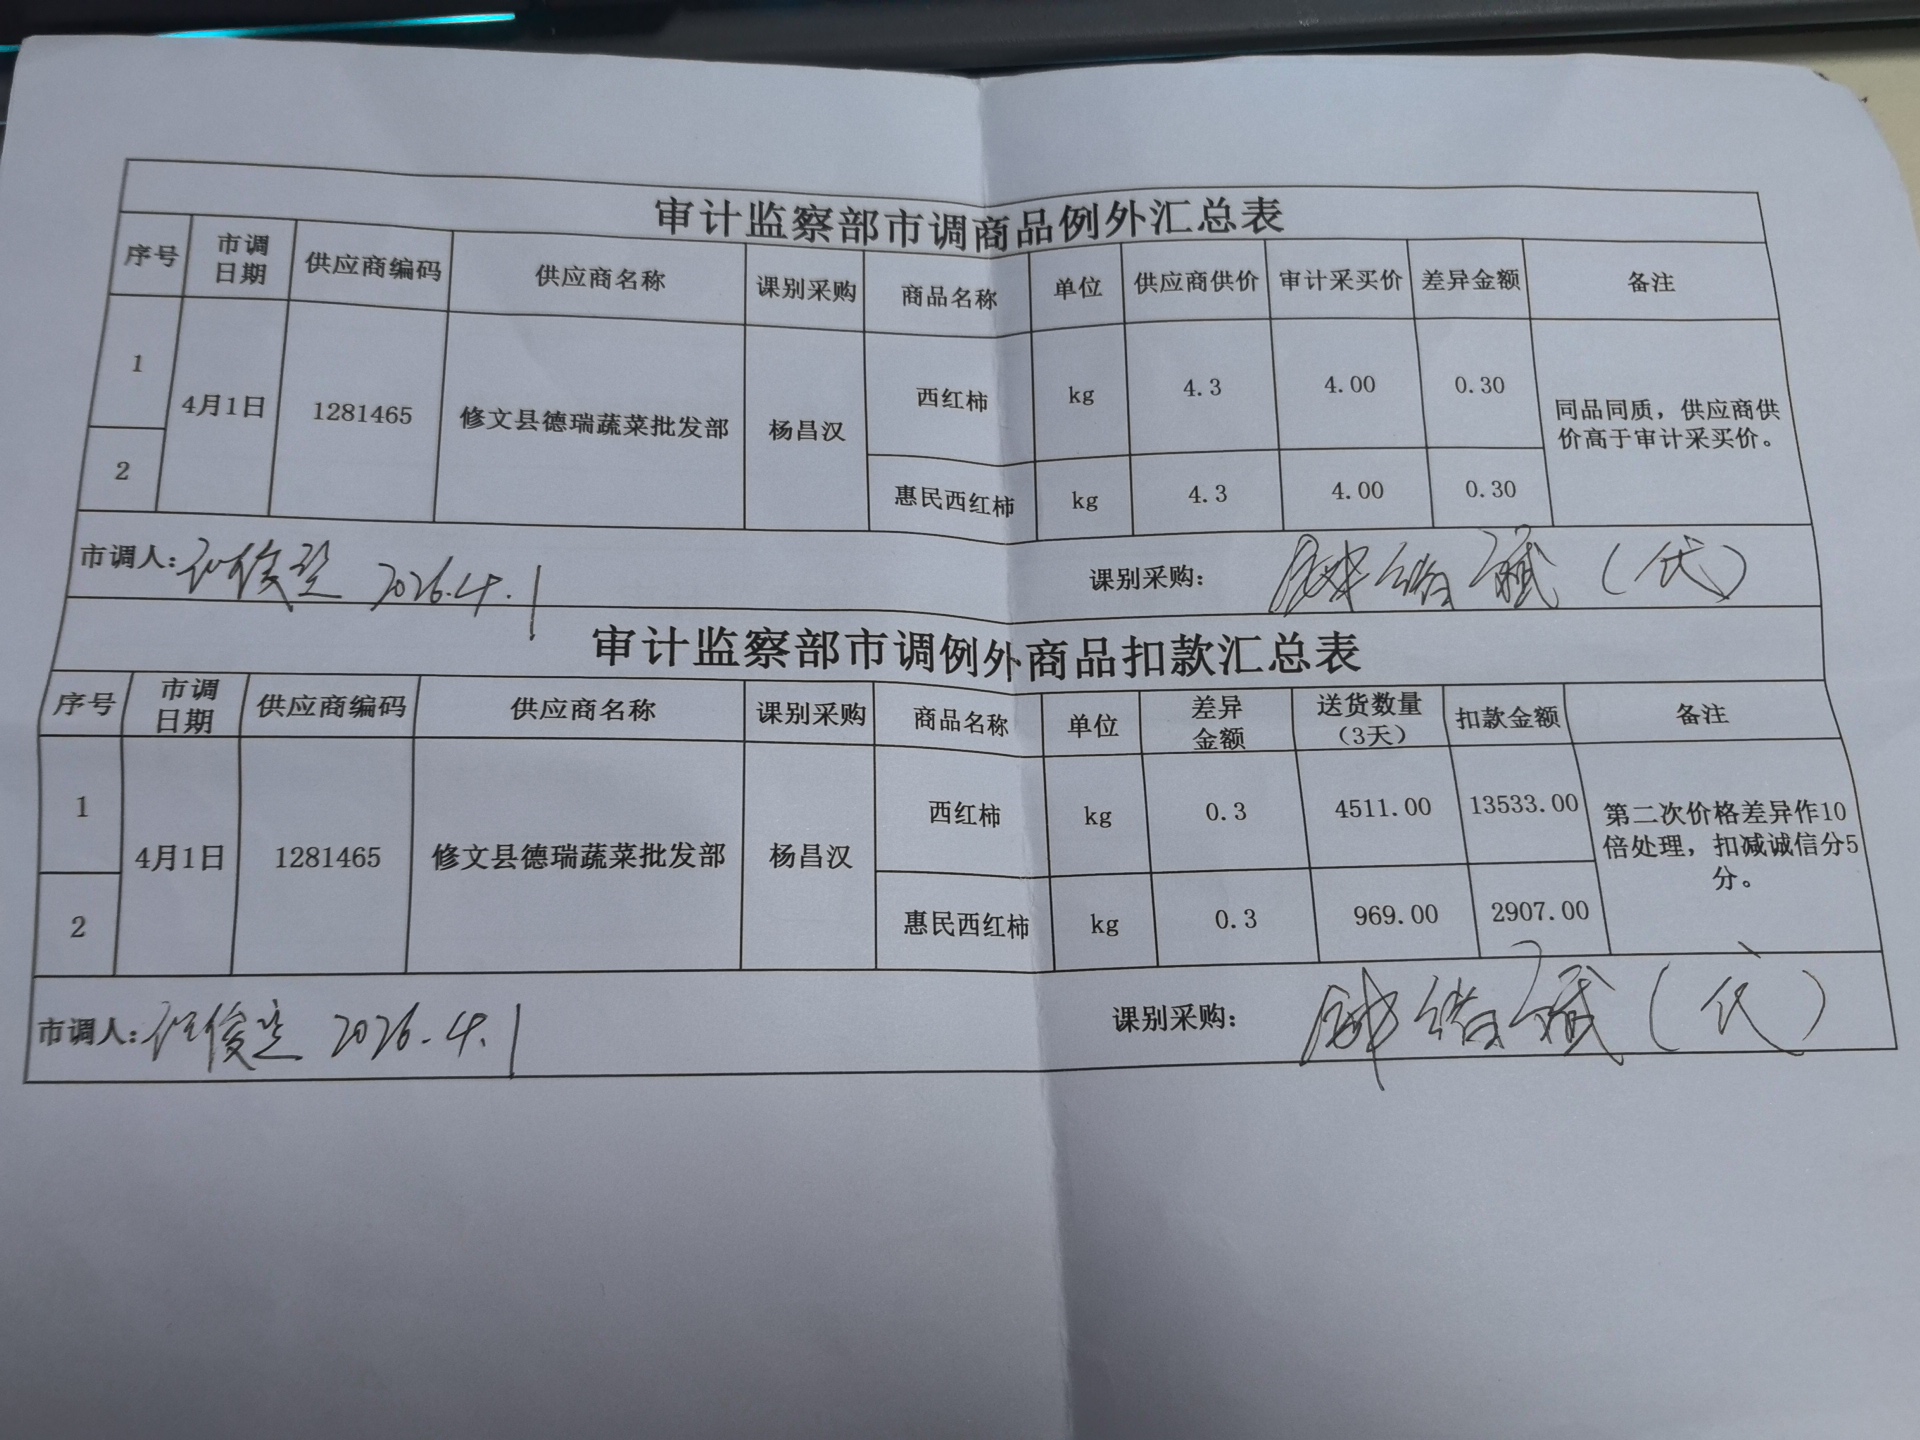 审计监察部市调商品例外汇总表
序号 市调日期 供应商编码 供应商名称 课别采购 商品名称 单位 供应商供价 审计采买价 差异金额 备注
1 4月1日 1281465 修文县德瑞蔬菜批发部 杨昌汉 西红柿 kg 4.3 4.00 0.30 同品同质，供应商供价高于审计采买价。
2 惠民西红柿 kg 4.3 4.00 0.30
市调人： 2026.4.1 课别采购： （代）
审计监察部市调例外商品扣款汇总表
序号 市调日期 供应商编码 供应商名称 课别采购 商品名称 单位 差异金额 送货数量（3天） 扣款金额 备注
1 4月1日 1281465 修文县德瑞蔬菜批发部 杨昌汉 西红柿 kg 0.3 4511.00 13533.00 第二次价格差异作10倍处理，扣减诚信分5分。
2 惠民西红柿 kg 0.3 969.00 2907.00
市调人： 2026.4.1 课别采购： （代）